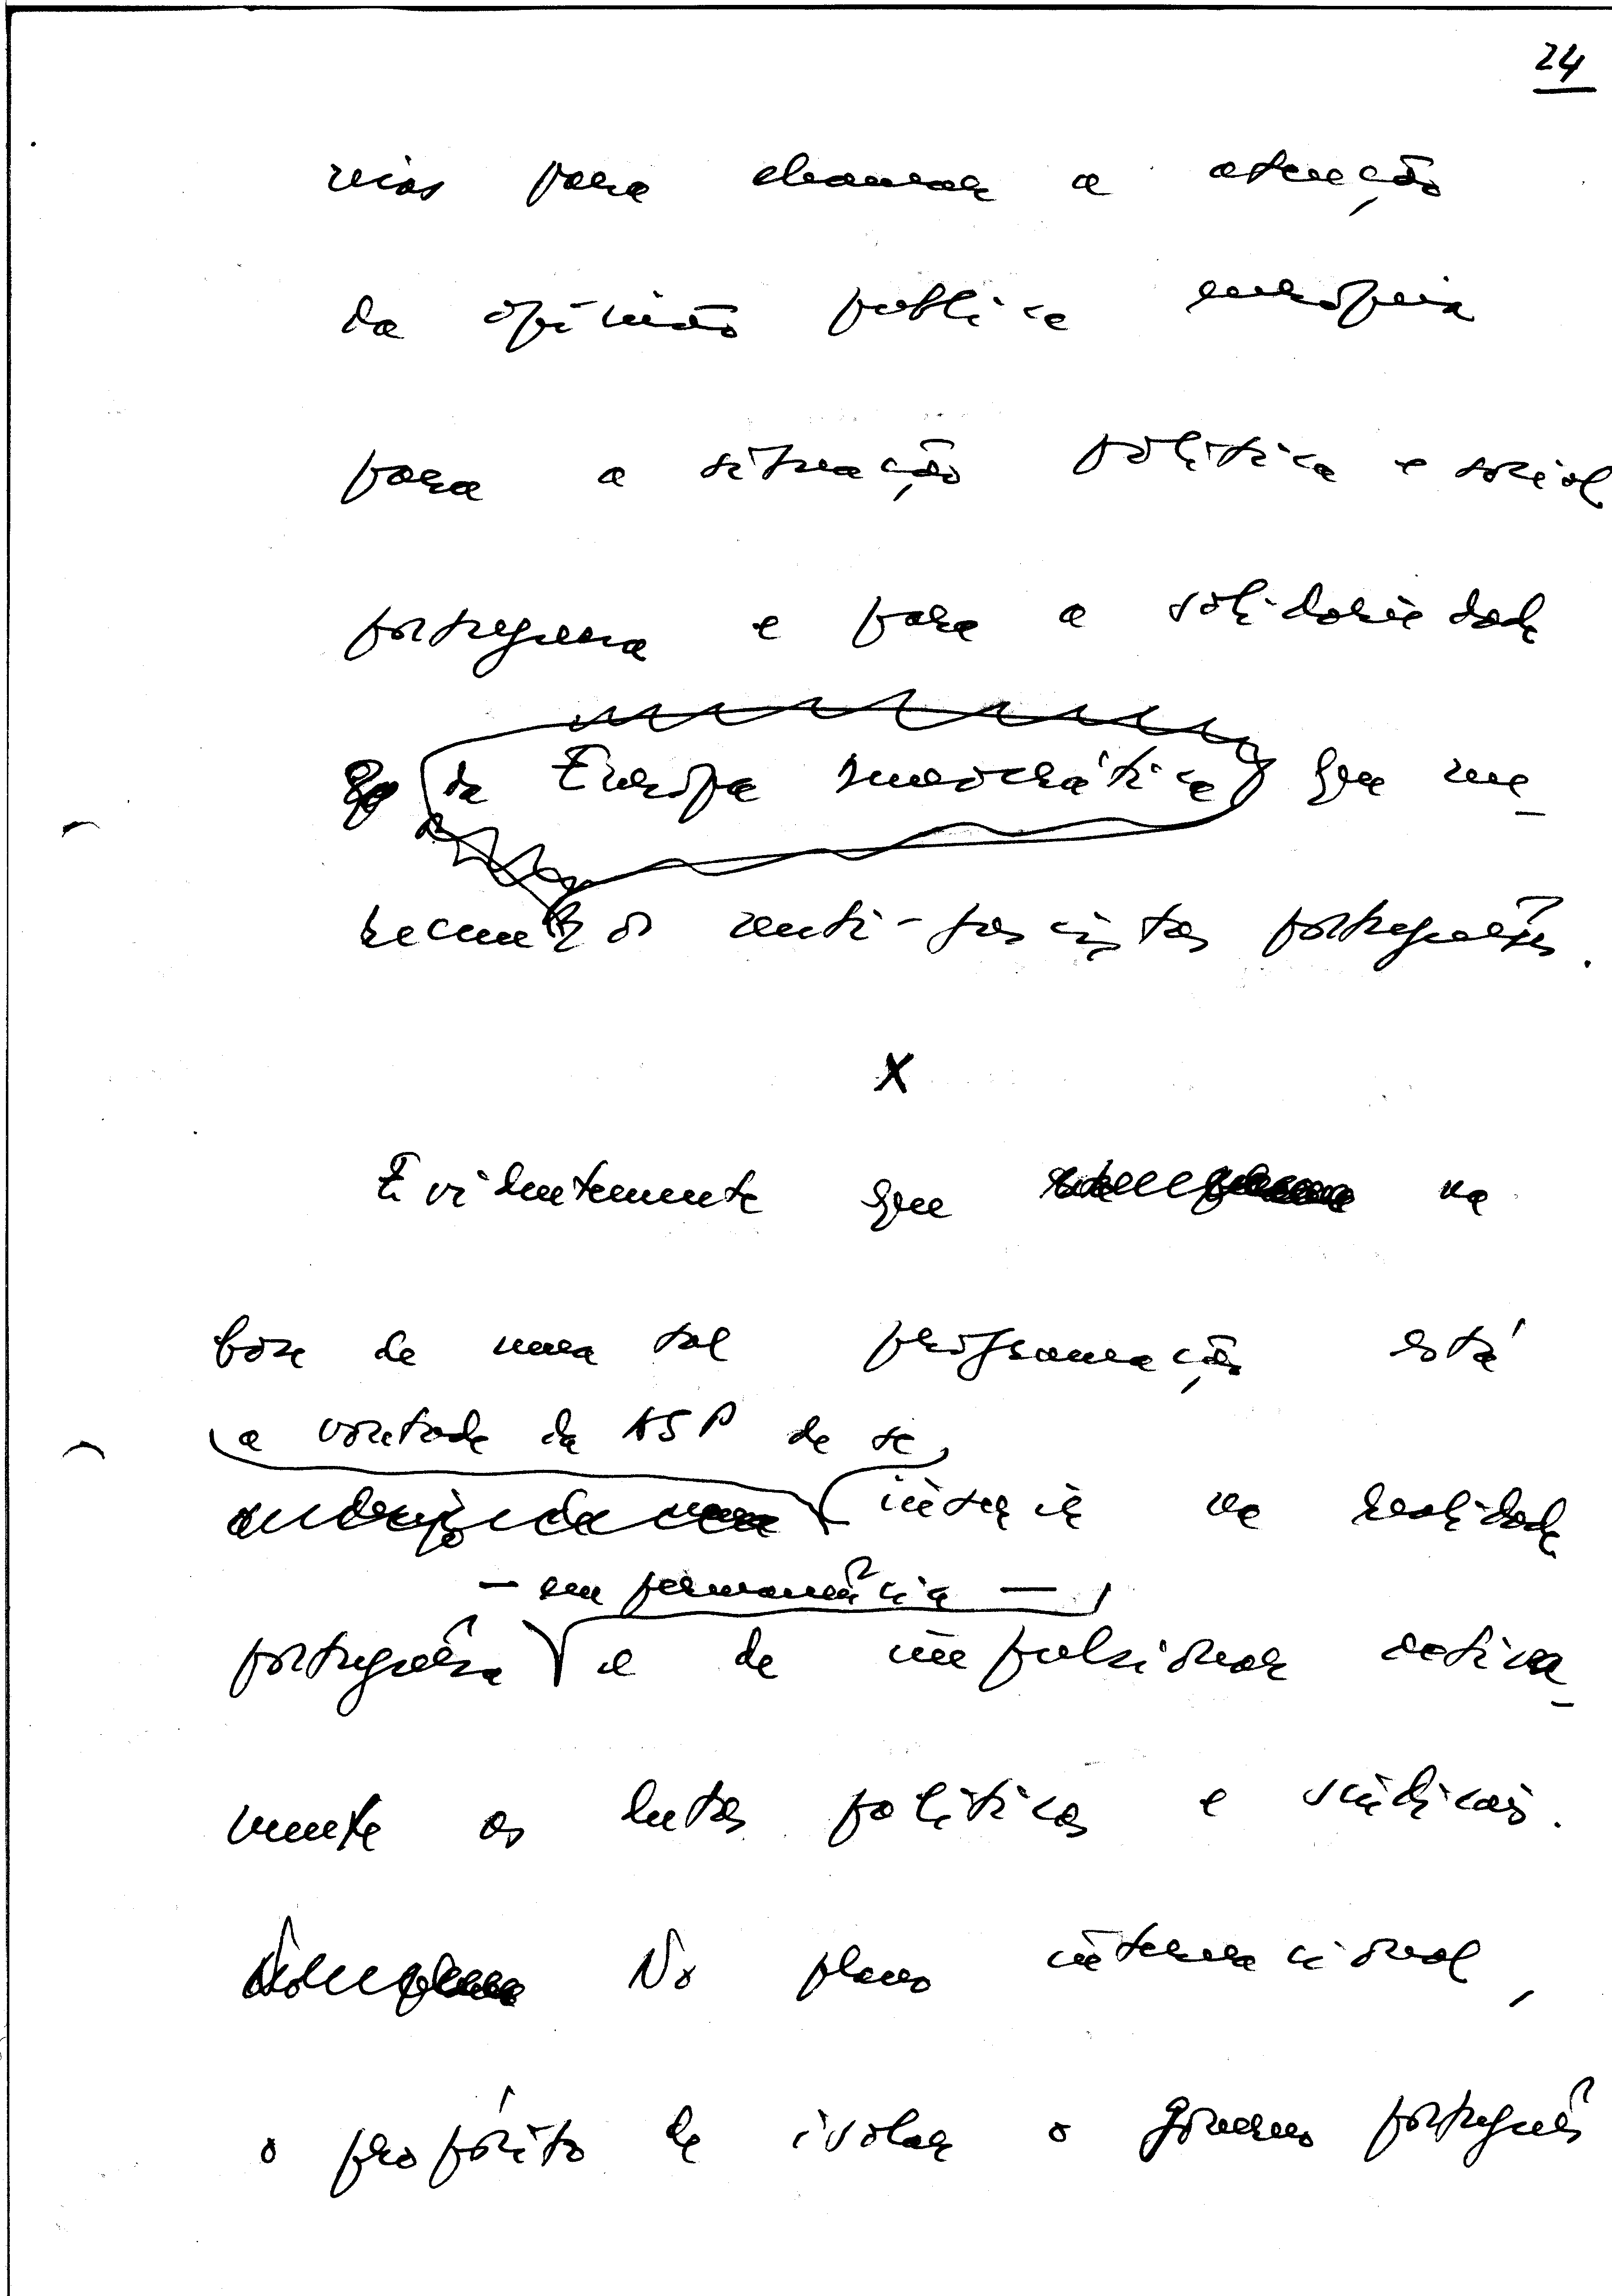 24
rios para chamar a atenção
da opinião publica europeia
para a situação politica e social
portuguesa e para a solidariedade
da Europa democrática que me-
recem os anti-fascistas portuguêses.
X
Evidentemente que na
base de uma tal programação está
a vontade da ASP de se
inserir na realidade
— em permanência —
portuguêsa e de impulsionar activa-
mente as lutas politicas e sindicais.
No plano internacional,
o propósito de isolar o governo português